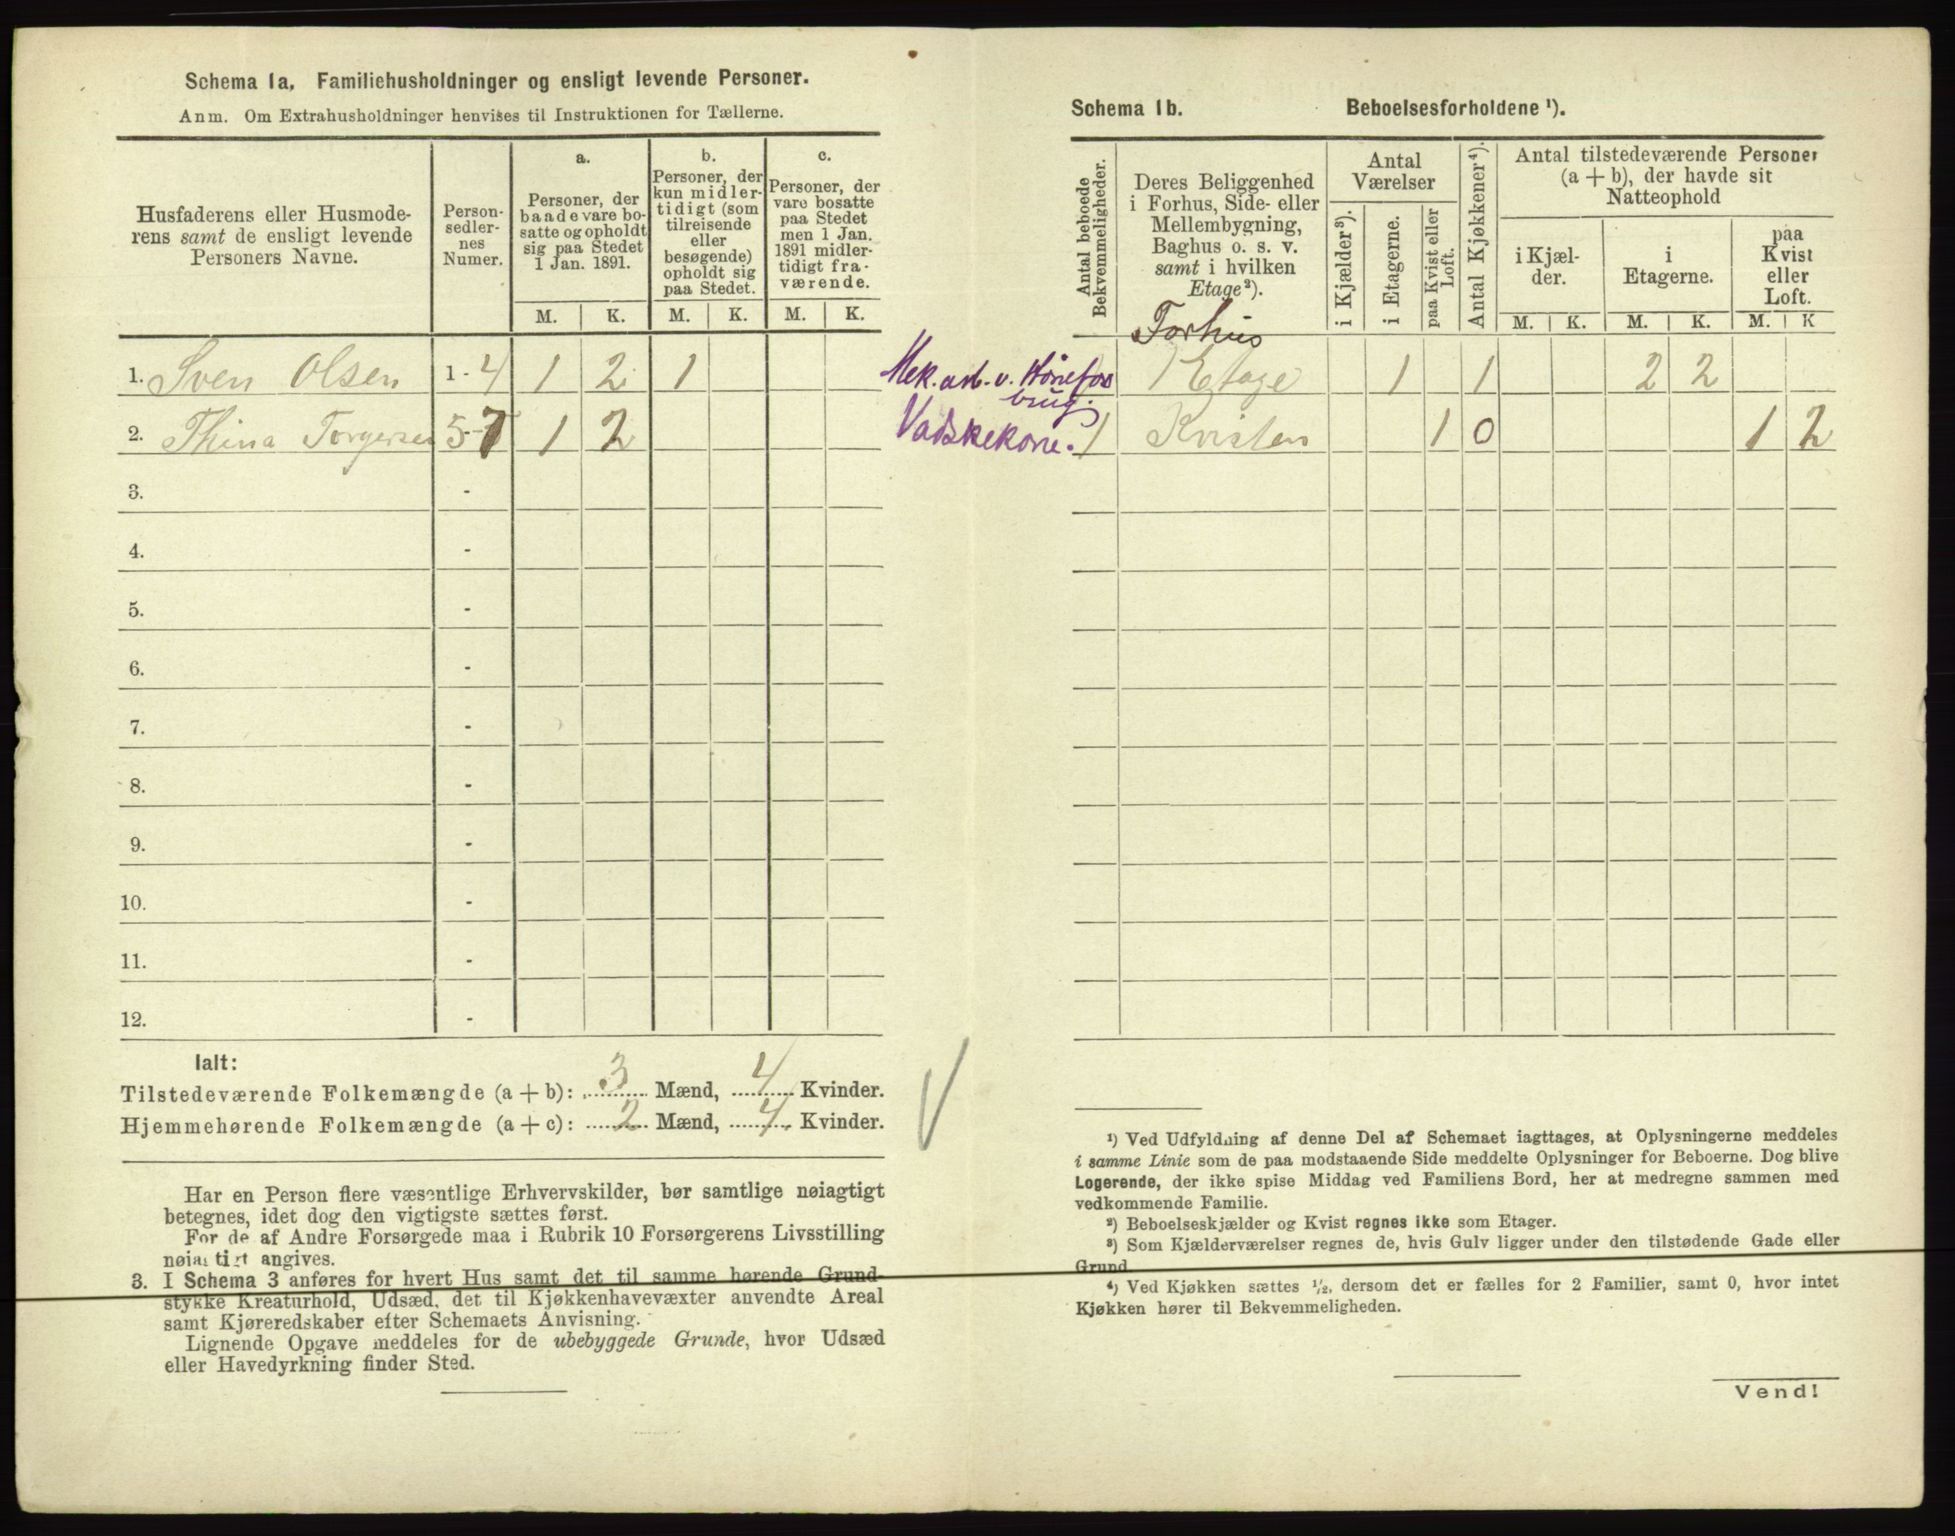 Schema 1a. Familiehusholdninger og ensligt levende Personer.
Anm. Om Extrahusholdninger henvises til Instruktionen for Tællerne.
Husfaderens eller Husmode-
rens samt de ensligt levende
Personers Navne.
Person-
sedler-
nes
Numer.
a.
Personer, der
baade vare bo-
satte og opholdt
sig paa Stedet
1 Jan. 1891.
b.
Personer, der
kun midler-
tidigt (som
tilreisende
eller
besøgende)
opholdt sig
paa Stedet.
c.
Personer, der
vare bosatte
paa Stedet
men 1 Jan.
1891 midler-
tidigt fra-
værende.
M. K. M. K. M. K.
1. Sven Olsen 1 - 4 1 2 1
2. Thina Torgersen 5-7 1 2
3. -
4. -
5. -
6. -
7. -
8. -
9. -
10. -
11. -
12. -
Ialt:
Tilstedeværende Folkemængde (a + b): 3 Mænd, 4 Kvinder.
Hjemmehørende Folkemængde (a + c): 2 Mænd, 4 Kvinder.
Har en Person flere væsentlige Erhvervskilder, bør samtlige nøiagtigt
betegnes, idet dog den vigtigste sættes først.
For de af Andre Forsørgede maa i Rubrik 10 Forsørgerens Livsstilling
nøiagtigt angives.
3. I Schema 3 anføres for hvert Hus samt det til samme hørende Grund-
stykke Kreaturhold, Udsæd, det til Kjøkkenhavevæxter anvendte Areal
samt Kjøreredskaber efter Schemaets Anvisning.
Lignende Opgave meddeles for de ubebyggede Grunde, hvor Udsæd
eller Havedyrkning finder Sted.
Schema 1b. Beboelsesforholdene ¹).
Antal beboede
Bekvemmeligheder.
Deres Beliggenhed
i Forhus, Side- eller
Mellembygning,
Baghus o. s. v.
samt i hvilken
Etage²).
Antal
Værelser
i Kjælder³).
i Etagerne.
paa Kvist eller
Loft.
Antal Kjøkkener⁴).
Antal tilstedeværende Personer
(a + b), der havde sit
Natteophold
i Kjæl-
der.
i
Etagerne.
paa
Kvist
eller
Loft.
M. K. M. K. M. K
Forhus
Mek. arb. v. Hønefos 1 Etage 1 1 2 2
brug.
Vadskekone. 1 Kvisten 1 0 1 2
¹) Ved Udfyldning af denne Del af Schemaet iagttages, at Oplysningerne meddeles
i samme Linie som de paa modstaaende Side meddelte Oplysninger for Beboerne. Dog blive
Logerende, der ikke spise Middag ved Familiens Bord, her at medregne sammen med
vedkommende Familie.
²) Beboelseskjælder og Kvist regnes ikke som Etager.
³) Som Kjælderværelser regnes de, hvis Gulv ligger under den tilstødende Gade eller
Grund
⁴) Ved Kjøkken sættes ¹/₂, dersom det er fælles for 2 Familier, samt 0, hvor intet
Kjøkken hører til Bekvemmeligheden.
Vend!